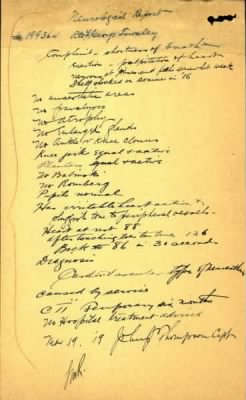 Neurological Report
Complaint - shortness of breath
 - palpitation of heart
nervous at times and
Shell shocked on Somme in '16
No anaesthetic areas
No paralysis
No Atrophy
No enlarged glands
No Ankle or Knee clonus
Knee jerk equal & active
Plantar equal & active
No Babinski
No Romberg
Pupils normal
Has irritable heart action &
sluggish tone to peripheral vessels
Heart at rest 88
after touching toes ten times 126
Back to 86 in 30 second
Diagnosis
Cardio vascular type of neurosis
caused by service
C II Temporary six months
No Hospital treatment advised
Mar 19. 19 John J Thompson Capt